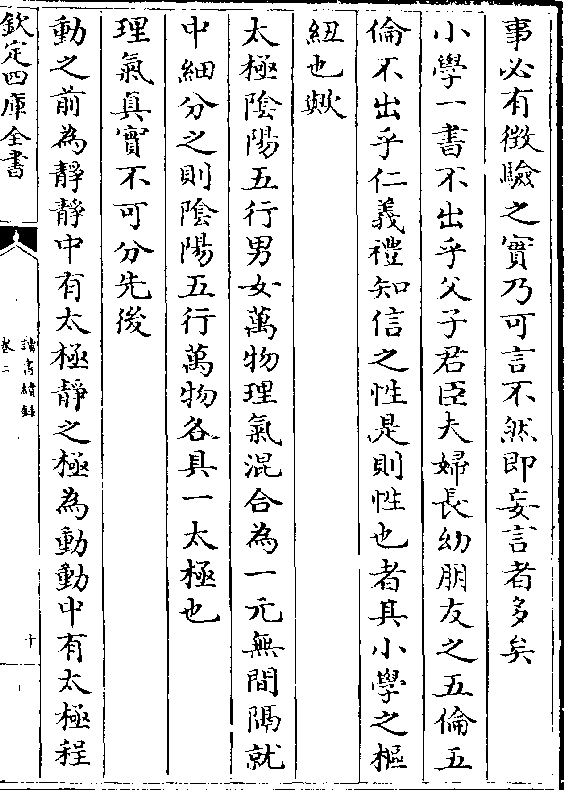 事必有徴驗之實乃可言不然即妄言者多矣
小學一書不出乎父子君臣夫婦長幼朋友之五倫五
倫不出乎仁義禮知信之性是則性也者其小學之樞
紐也歟
太極陰陽五行男女萬物理氣混合為一元無間隔就
中細分之則陰陽五行萬物各具一太極也
理氣真實不可分先後
動之前為靜靜中有太極靜之極為動動中有太極程
欽定四庫全書
讀書續錄
卷二
十